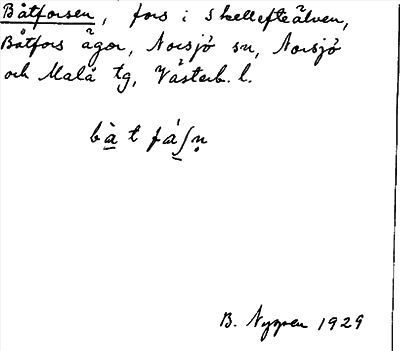 Båtforsen, fors i Skellefteälven,
Båtfors ägor, Norsjö sn, Norsjö
och Malå tg, Västerb. l.
bà̲ t fá̲ʃṇ
B. Nygren 1929